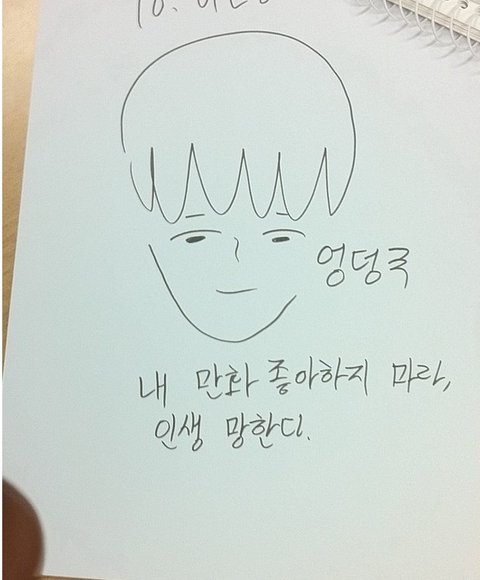 엉덩국
내 만화 좋아하지 마라,
인생 망한디.